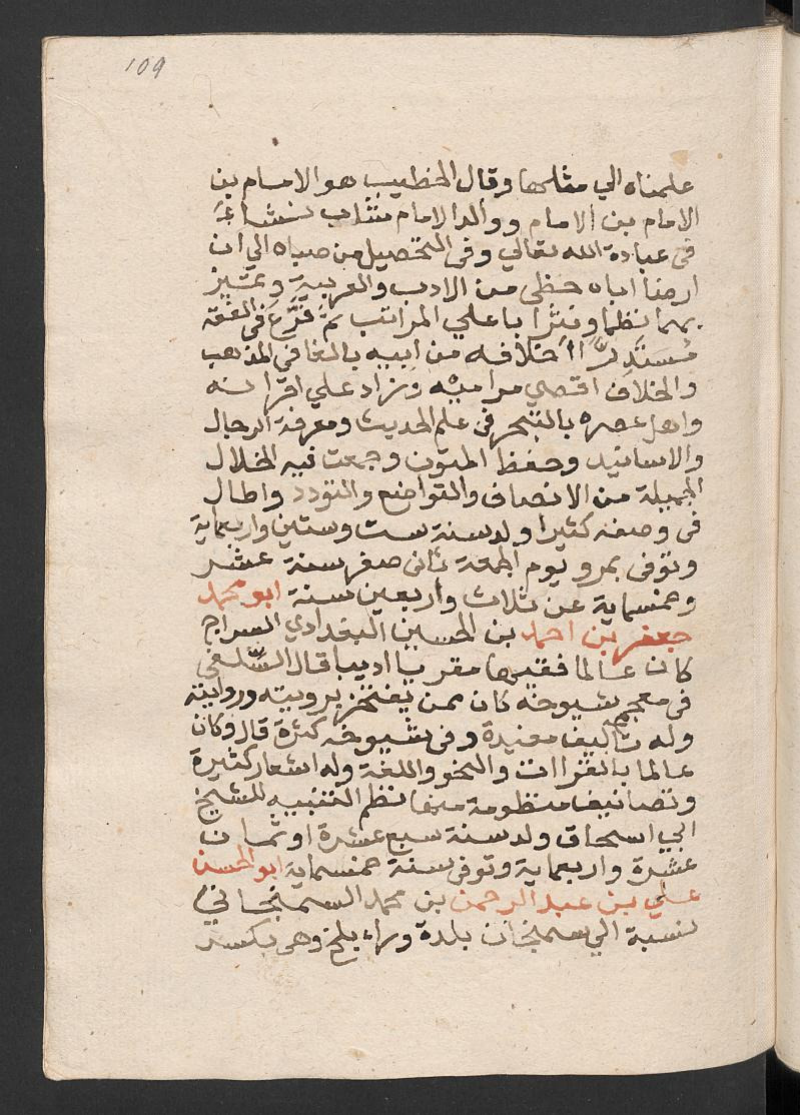 109
علمناه الي مثلها وقال الخطيب هو الامام بن
الامام بن الامام ووالد الامام شاب نشاء
في عبادة الله تعالي وفي التحصيل من صباه الي ان
ارضا اباه حظي من الادب والعربية وتميز
بهما نظما ونثرا باعلي المراتب ثم فرَّع في الفقه
مستدرًّا اخلافه من ابيه بالغا في المذهب
والخلاف اقصي مراميه وزاد علي اقرانه
واهل عصره بالتبحر في علم الحديث ومعرفة الرجال
والاسانيد وحفظ المتون وجمعت فيه الخلال
الجميلة من الانصاف والتواضع والتودد واطال
في وصفه كثيرا ولد سنة ست وستين واربعماية
وتوفي بمرو يوم الجمعة ثاني صفر سنة عشر
وخمسماية عن ثلاث واربعين سنة ابو محمد
جعفر بن احمد بن الحسين البغدادي السراج
كان عالما فقيها مقريا اديبا قال السِّلفي
في معجم شيوخه كان ممن يفتخر برويته وروايته
وله تآليف مفيدة وفي شيوخه كثرة قال وكان
عالما بالقراات والنحو واللغة وله اشعار كثيرة
وتصانيف منظومة منها نظم التنبيه للشيخ
ابي اسحاق ولد سنة سبع عشرة او ثمان
عشرة واربعماية وتوفي سنة خمسماية ابو الحسن
علي بن عبد الرحمن بن محمد السمنجاني
نسبة الي سمنجان بلدة وراء بلخ وهي بكسر